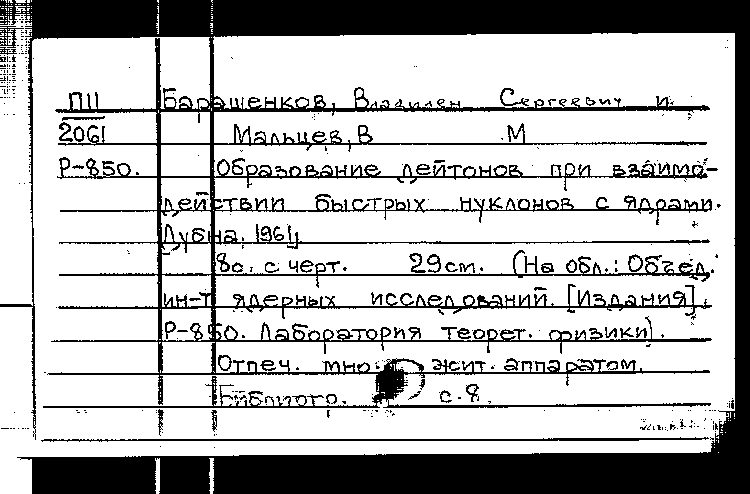 ПII Барашенков, Владилен Сергеевич и
2061 Мальцев, В М
Р-850. Образование дейтонов при взаимо-
действии быстрых нуклонов с ядрами.
[Дубна, 1961]
8с. с черт. 29см. (На обл.: Объед.
ин-т ядерных исследований. [Издания].
Р-850. Лаборатория теорет. физики).
Отпеч. множит. аппаратом.
Библиогр. с. 8.